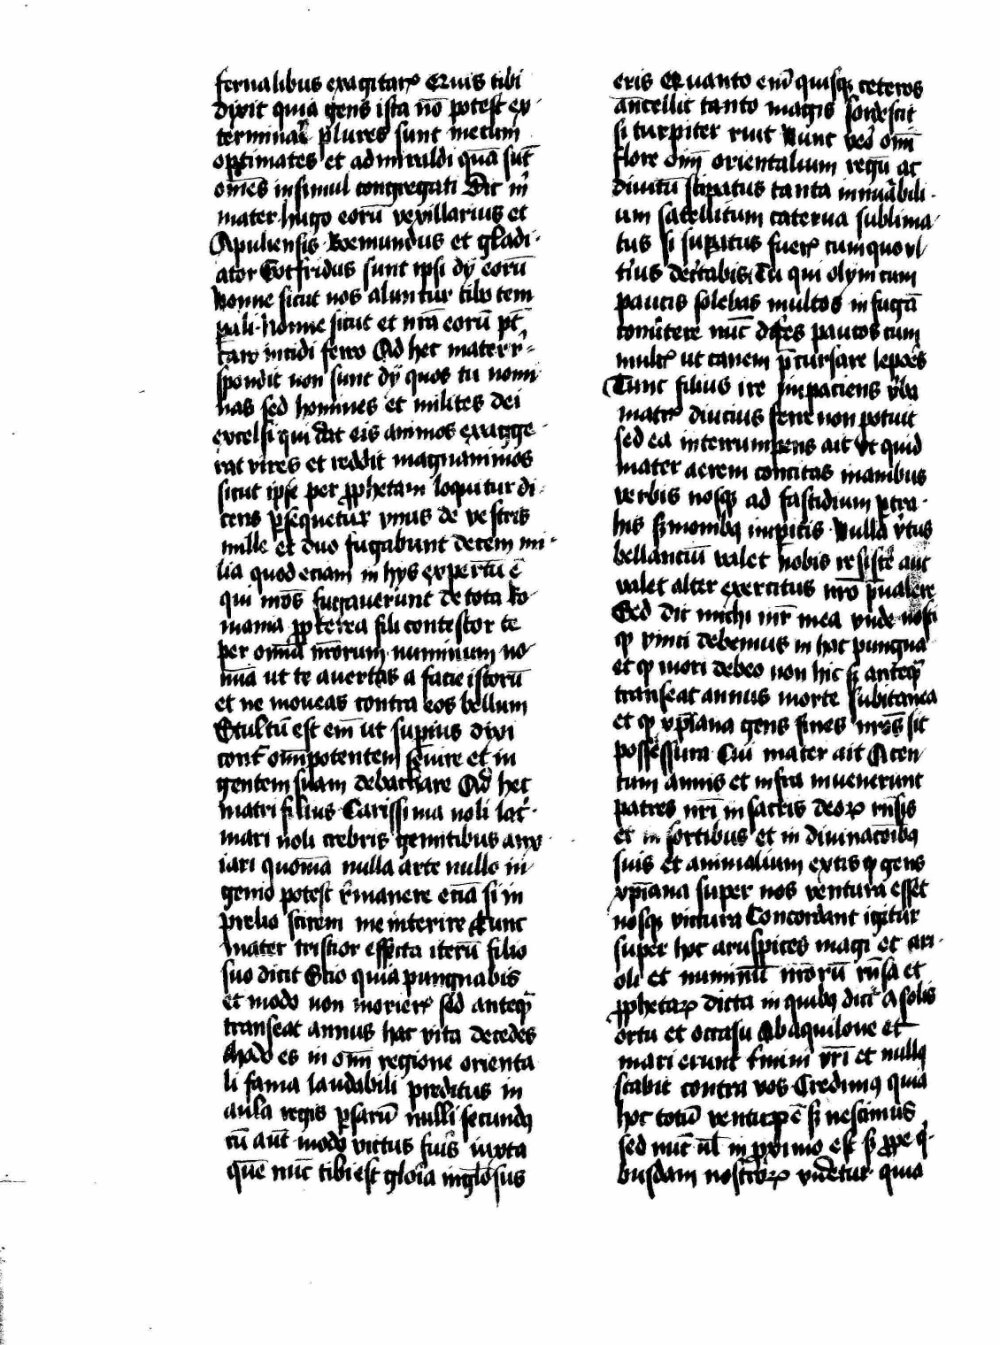 fernalibus exagitar᷒ Quis tibi
dixit quia gens ista nō potest ex-
terminar̄ plures sunt mecum
optimates et admiraldi quā sūt
om̄es insimul congregati Dic m̄
mater hugo eorū vexillarius et
Apuliensis Boemundus et gladi-
ator Gotfridus sunt ipsi dij eorū
Nonne sicut nos aluntur cibo tem
pali. Nonne sicut et nr̄a eorū pt̄
caro incidi ferro Ad hec mater r̄-
spondit non sunt dij quos tu nomi
nas sed homines et milites dei
excelsi qui dat eis animos exagge-
rat vires et reddit magnanimos
sicut ipse per ꝓphetam loquitur di-
cens ꝑsequetur vnus de vestris
mille et duo fugabunt decem mi-
lia quod etiam in hijs expertū ē
qui nr̄os fugauerunt de tota Ro
mania ꝓpterea fili contestor te
per omīa nr̄orum numinum no
mīa ut te auertas a facie istorū
et ne moueas contra eos bellum
Stultū est em̄ ut supius dixi
cont̄ om̄ipotentem seuire et in
gentem suam debachare Ad hec
matri filius Carissima noli lac̄-
mari noli crebris gemitibus anx
iari quoniā nulla arte nullo in-
genio potest r̄manere etiā si in
prelio scirem me interire Tunc
mater tristior effecta iterū filio
suo dicit Scio quia pungnabis
et modo non morier᷒ sed anteq̄
transeat annus hac vita decedes
Modo es in om̄i regione orienta
li fama laudabili preditus in
aula regis ꝑsarū nulli secundꝰ
cū aūt modo victus fuīs iuxta
quē nūc tibi est glōia inglōsus
eris Quanto em̄ quisqꝫ ceteros
ancellit tanto magis sordescit
si turpiter ruit Nunc veō om̄i
flore om̄i orientalium regū ac
diuitū stipatus tanta innūabili-
um satellitum caterua sublima-
tus si supatus fuer᷒ cum quo vl
t̄ius dectabis Tu qui olym cum
paucis solebas multos in fugā
conūtere nūc disces paucos cum
mult᷒ ut canem p̄cursare lepoēs
Tunc filius ire impaciens v̄ba
matr᷒ diucius ferre non potuit
sed ea interrumpens ait Ut quid
mater aerem concitas inanibus
verbis nosqꝫ ad fastidium ꝑtra-
his s̄monibꝫ inꝑitis Nulla v̄tus
bellanciū valet nobis resistē aut
valet alter exercitus nr̄o p̄ualere
Sed dic michi mr̄ mea vnde nosti
ꝙ vinci debemus in hac pungna
et ꝙ mori debeo non hic sꝫ anteq̄
transeat annus morte subitanea
et ꝙ xp̄iana gens fines nr̄os sit
possessura Cui mater ait A cen
tum annis et infra inuenerunt
patres nr̄i in sacris deoꝝ rn̄sis
et in sortibus et in diuinacōibꝫ
suis et animalium extis ꝙ gens
xp̄iana super nos ventura esset
nosqꝫ victura Concordant igitur
super hoc aruspices magi et ari-
oli et numinū nr̄orū rn̄sa et
ꝓphetaꝝ dicta in quibꝫ dicit᷒ A solis
ortu et occasu Ab aquilone et
mari erunt t̄mini vr̄i et nullꝰ
stabit contra vos Credimꝰ quia
hoc totū ventuꝝ ē sꝫ nescimus
sed nūc vl̄ in ꝓximo est sꝫ ꝓpe q̄-
busdam nostroꝝ videtur quia